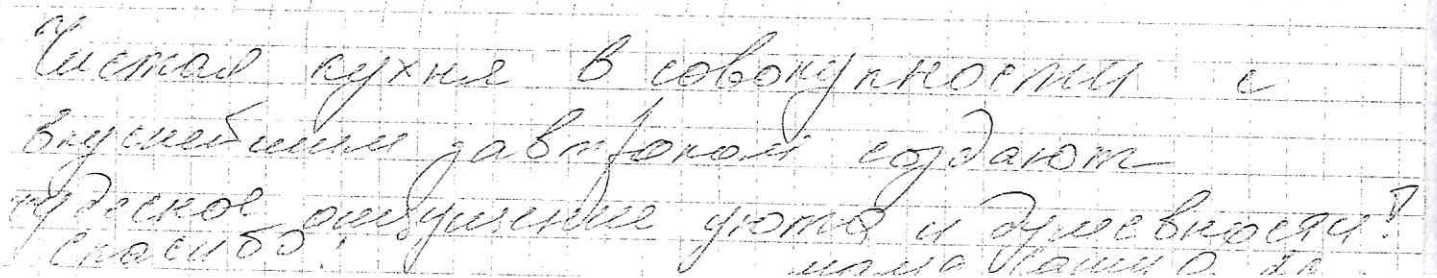 Чистая кухня в совокупности с
вкуснейшим завтраком создают
чудесное ощущение уюта и душевности!
Спасибо! мама